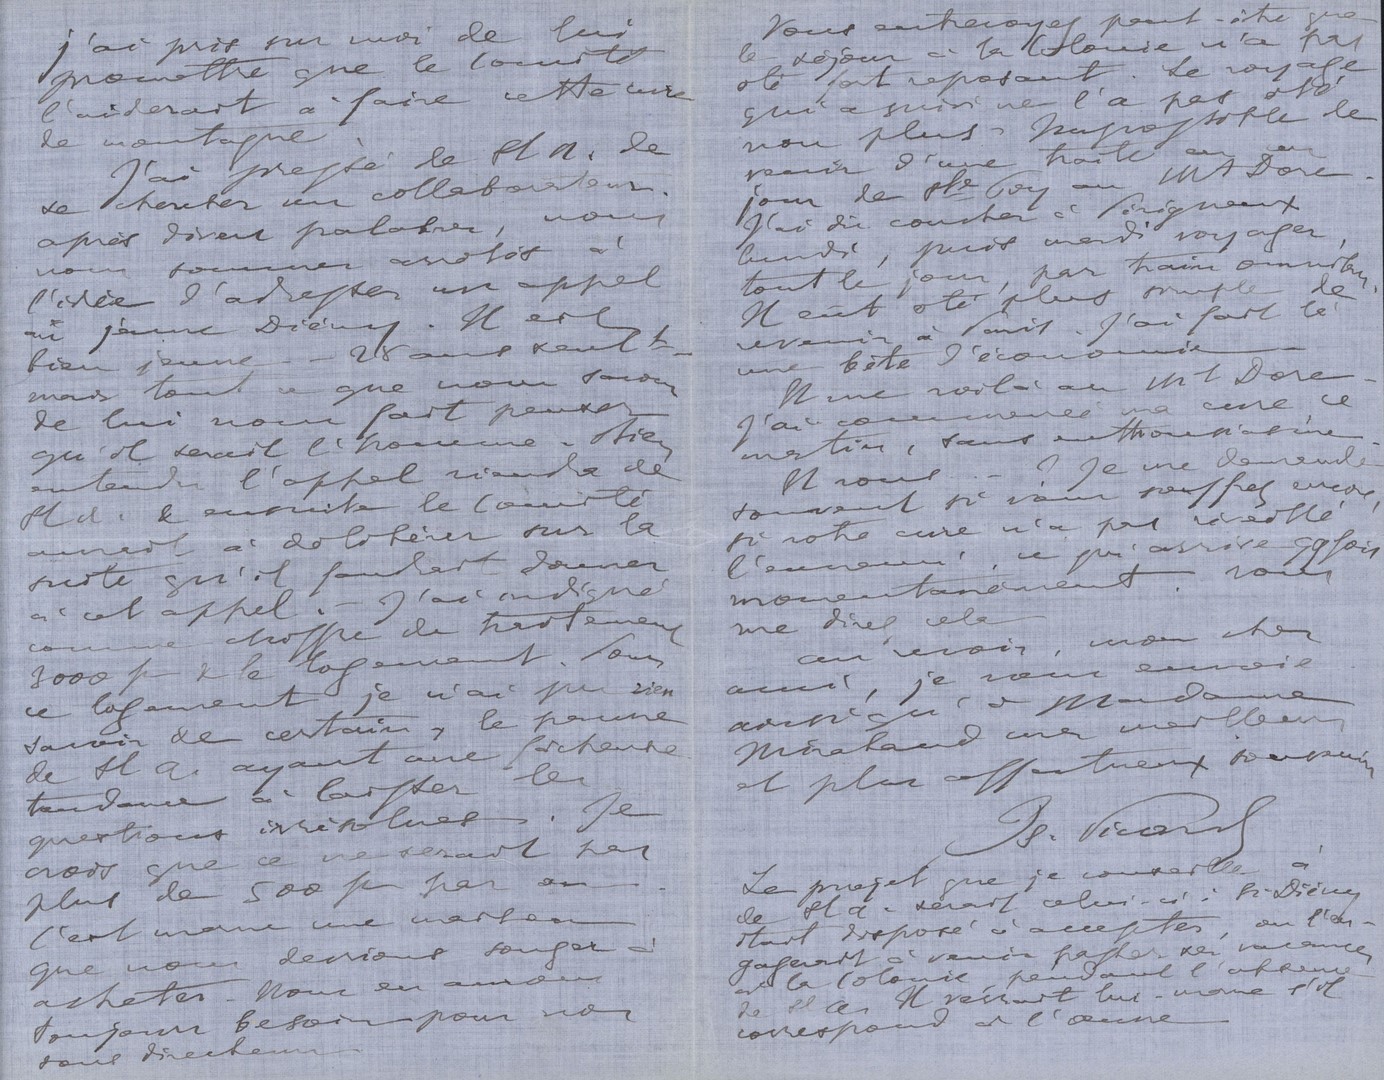 j'ai pris sur moi de lui
promettre que le Comité
l'aiderait à faire cette cure
de montagne.
J'ai pressé de St A. de
se chercher un collaborateur.
après divers palabres, nous
nous sommes arrêtés à
l'idée d'adresser un appel
au jeune Diény. Il est
bien jeune - - 28 ans seult -
mais tout ce que nous savons
de lui nous fait penser
qu'il serait l'homme. Bien
entendu l'appel viendra de
St A. & ensuite le Comité
aurait à délibérer sur la
suite qu'il faudrait donner
à cet appel. - J'ai indiqué
comme chiffre de traitement
3000 fr & le logement. Pour
ce logement je n'ai pu rien
savoir de certain, le pauvre
de St A. ayant une fâcheuse
tendance à laisser les
questions irrésolues. Je
crois que ce ne serait pas
plus de 500 fr par an.
C'est même une maison
que nous devrions songer à
acheter. Nous en aurons
toujours besoin pour nos
sous directeurs
Vous entrevoyez peut-être que
le séjour à la Colonie n'a pas
été fort reposant. Le voyage
qui a suivi ne l'a pas été
non plus. Impossible de
venir d'une traite en un
jour de Ste Foy au Mt Dore.
J'ai dû coucher à Périgueux
lundi, puis mardi voyager,
tout le jour, par train omnibus.
Il eût été plus simple de
revenir à Paris. J'ai fait là
une bête d'économie
Et me voilà au Mt Dore -
J'ai commencé ma cure, ce
matin, sans enthousiasme.
Et vous - ? Je me demande
souvent si vous souffrez encore,
si votre cure n'a pas réveillé
l'ennemi, ce qui arrive qqfois
momentanément. Vous
me direz cela
au revoir, mon cher
ami, je vous envoie
ainsi qu'à Madame
Mirabaud mes meilleurs
et plus affectueux souvenirs
Bs. Picard
Le projet que je conseille à
de St A. serait celui-ci: Si Diény
était disposé à accepter, on l'en-
gagerait à venir passer ses vacances
à la Colonie pendant l'absence
de St A. Il verrait lui-même s'il
correspond à l'œuvre